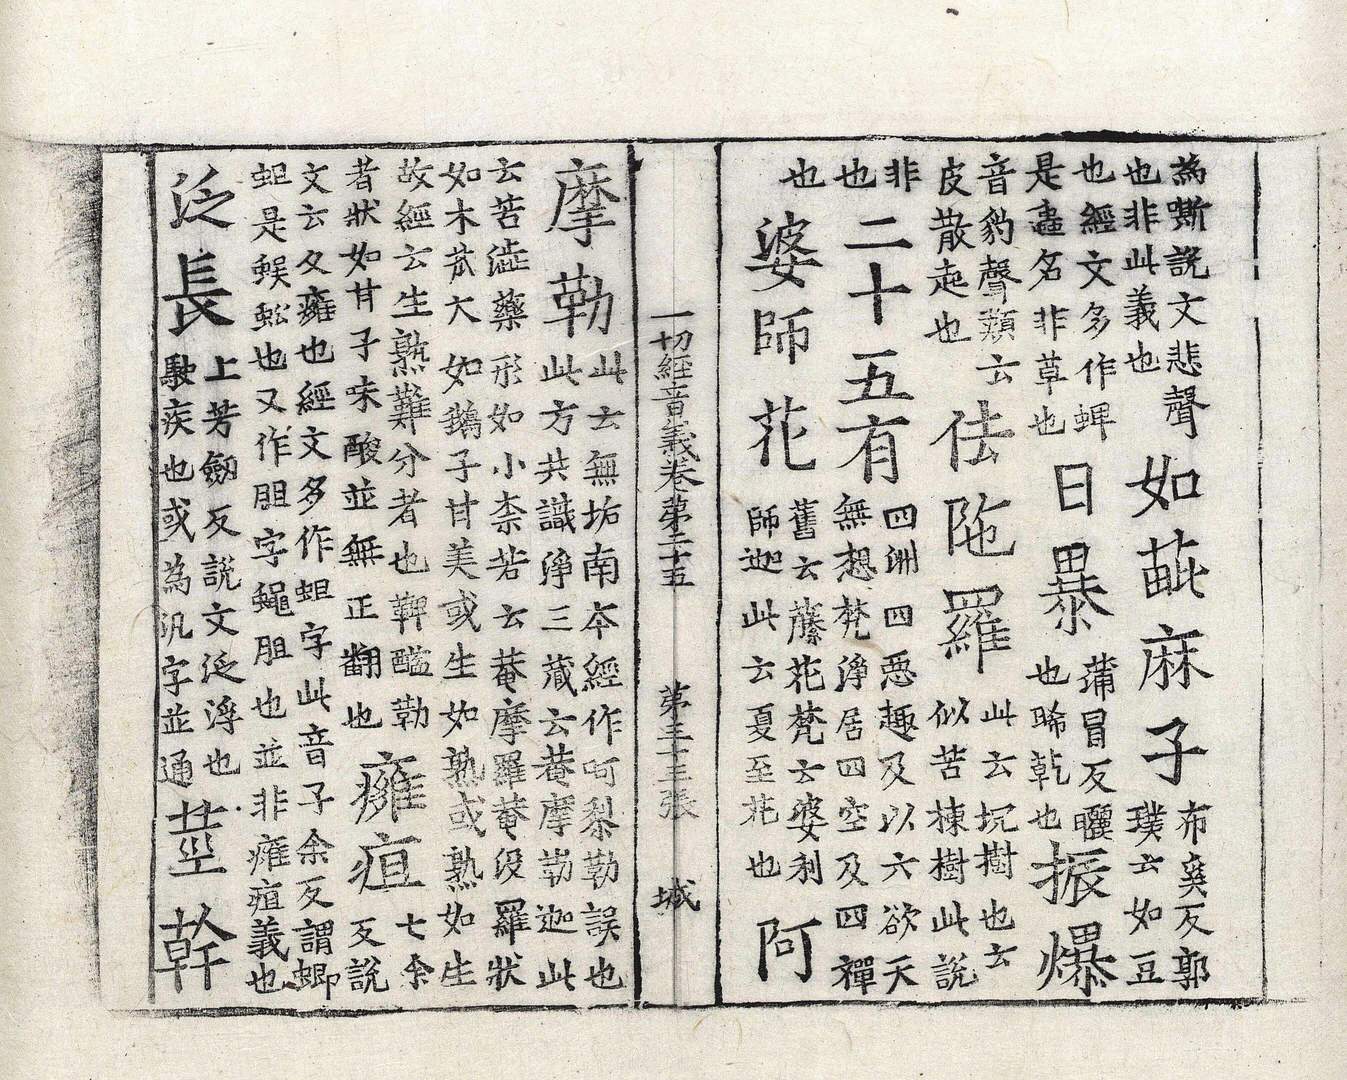 為嘶說文悲聲
也非此義也
如䓫麻子
布奚反郭
璞云如豆
也經文多作蜱
是䘃名非草也
日㬥
蒲冒反曬
也晞乾也
振爆
音豹聲類云
皮散起也
佉陁羅
此云坑樹也云
似苦楝樹此說
非
也
二十五有
四洲四惡趣及以六欲天
無想梵淨居四空及四禪
也
婆師花
舊云藤花梵云婆利
師迦此云夏至花也
阿
一切經音義卷第二十五
第三十三張
城
摩勒
此云無垢南本經作呵梨勒誤也
此方共識淨三藏云菴摩勒迦此
云苦澁藥形如小柰若云菴摩羅菴沒羅狀
如木苽大如鵝子甘美或生如熟或熟如生
故經云生熟難分者也鞞醯勒
者狀如甘子味酸並無正翻也
癰疽
七余
反說
文云久癰也經文多作蛆字此音子余反謂蝍
蛆是蜈蚣也又作胆字蠅胆也並非癰疽義也
泛長
上芳劒反說文泛浮也
駛疾也或為汎字並通
莖幹